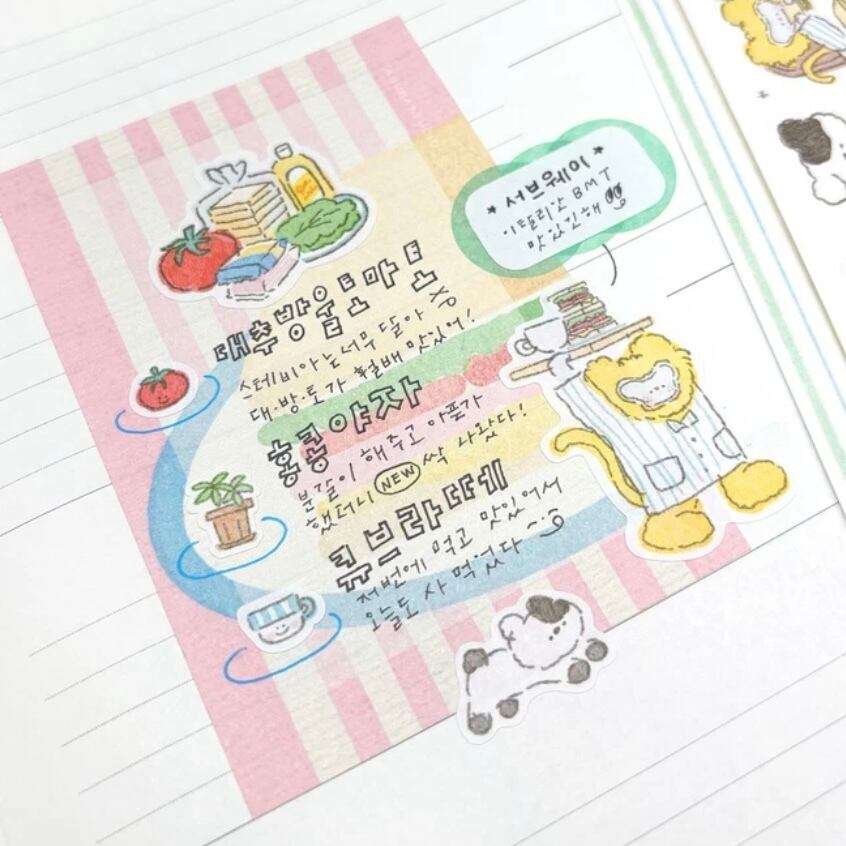 * 서브웨이 *
이탈리안 BMT
맛있긴해
대추방울토마토
스테비아는 너무 달아
대·방·토가 훨배 맛있어!
홍콩야자
분갈이 해주고 아픈가
했더니 NEW 싹 나왔다!
큐브라떼
저번에 먹고 맛있어서
오늘도 사 먹었다